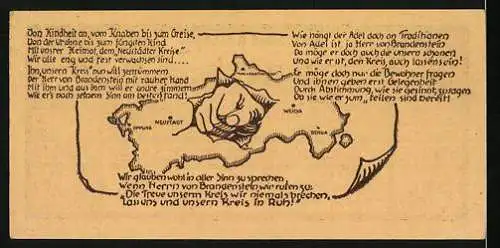 Von Kindheit an, vom Knaben bis zum Greise,
Von der Urahne bis zum jüngsten Kind
Mit unsrer Heimat, dem „Neustädter Kreise“
Wir alle eng und fest verwachsen sind....
Ihn, unsern Kreis, nun will zertrümmern
Der Herr von Brandenstein mit rauher Hand
Mit ihm und aus ihm will er andre zimmern
Wie er's nach seinem Sinn am besten fand!
Wie hängt der Adel doch an Traditionen
Von Adel ist ja Herr von Brandenstein
Da möge er doch auch die unsern schonen
und wie er ist, den Kreis, auch lassen sein!
Er möge doch nur die Bewohner fragen
Und ihnen geben erst Gelegenheit
Durch Abstimmung, wie sie gesinnt, zu sagen
Ob sie wie er zum „teilen sind bereit!
NEUSTADT
WEIDA
Wir glauben wohl in aller Sinn zu sprechen,
Wenn Herrn von Brandenstein wir rufen zu:
„Die Treue unserm Kreis wir niemals brechen,
Lass uns und unsern Kreis in Ruh!“